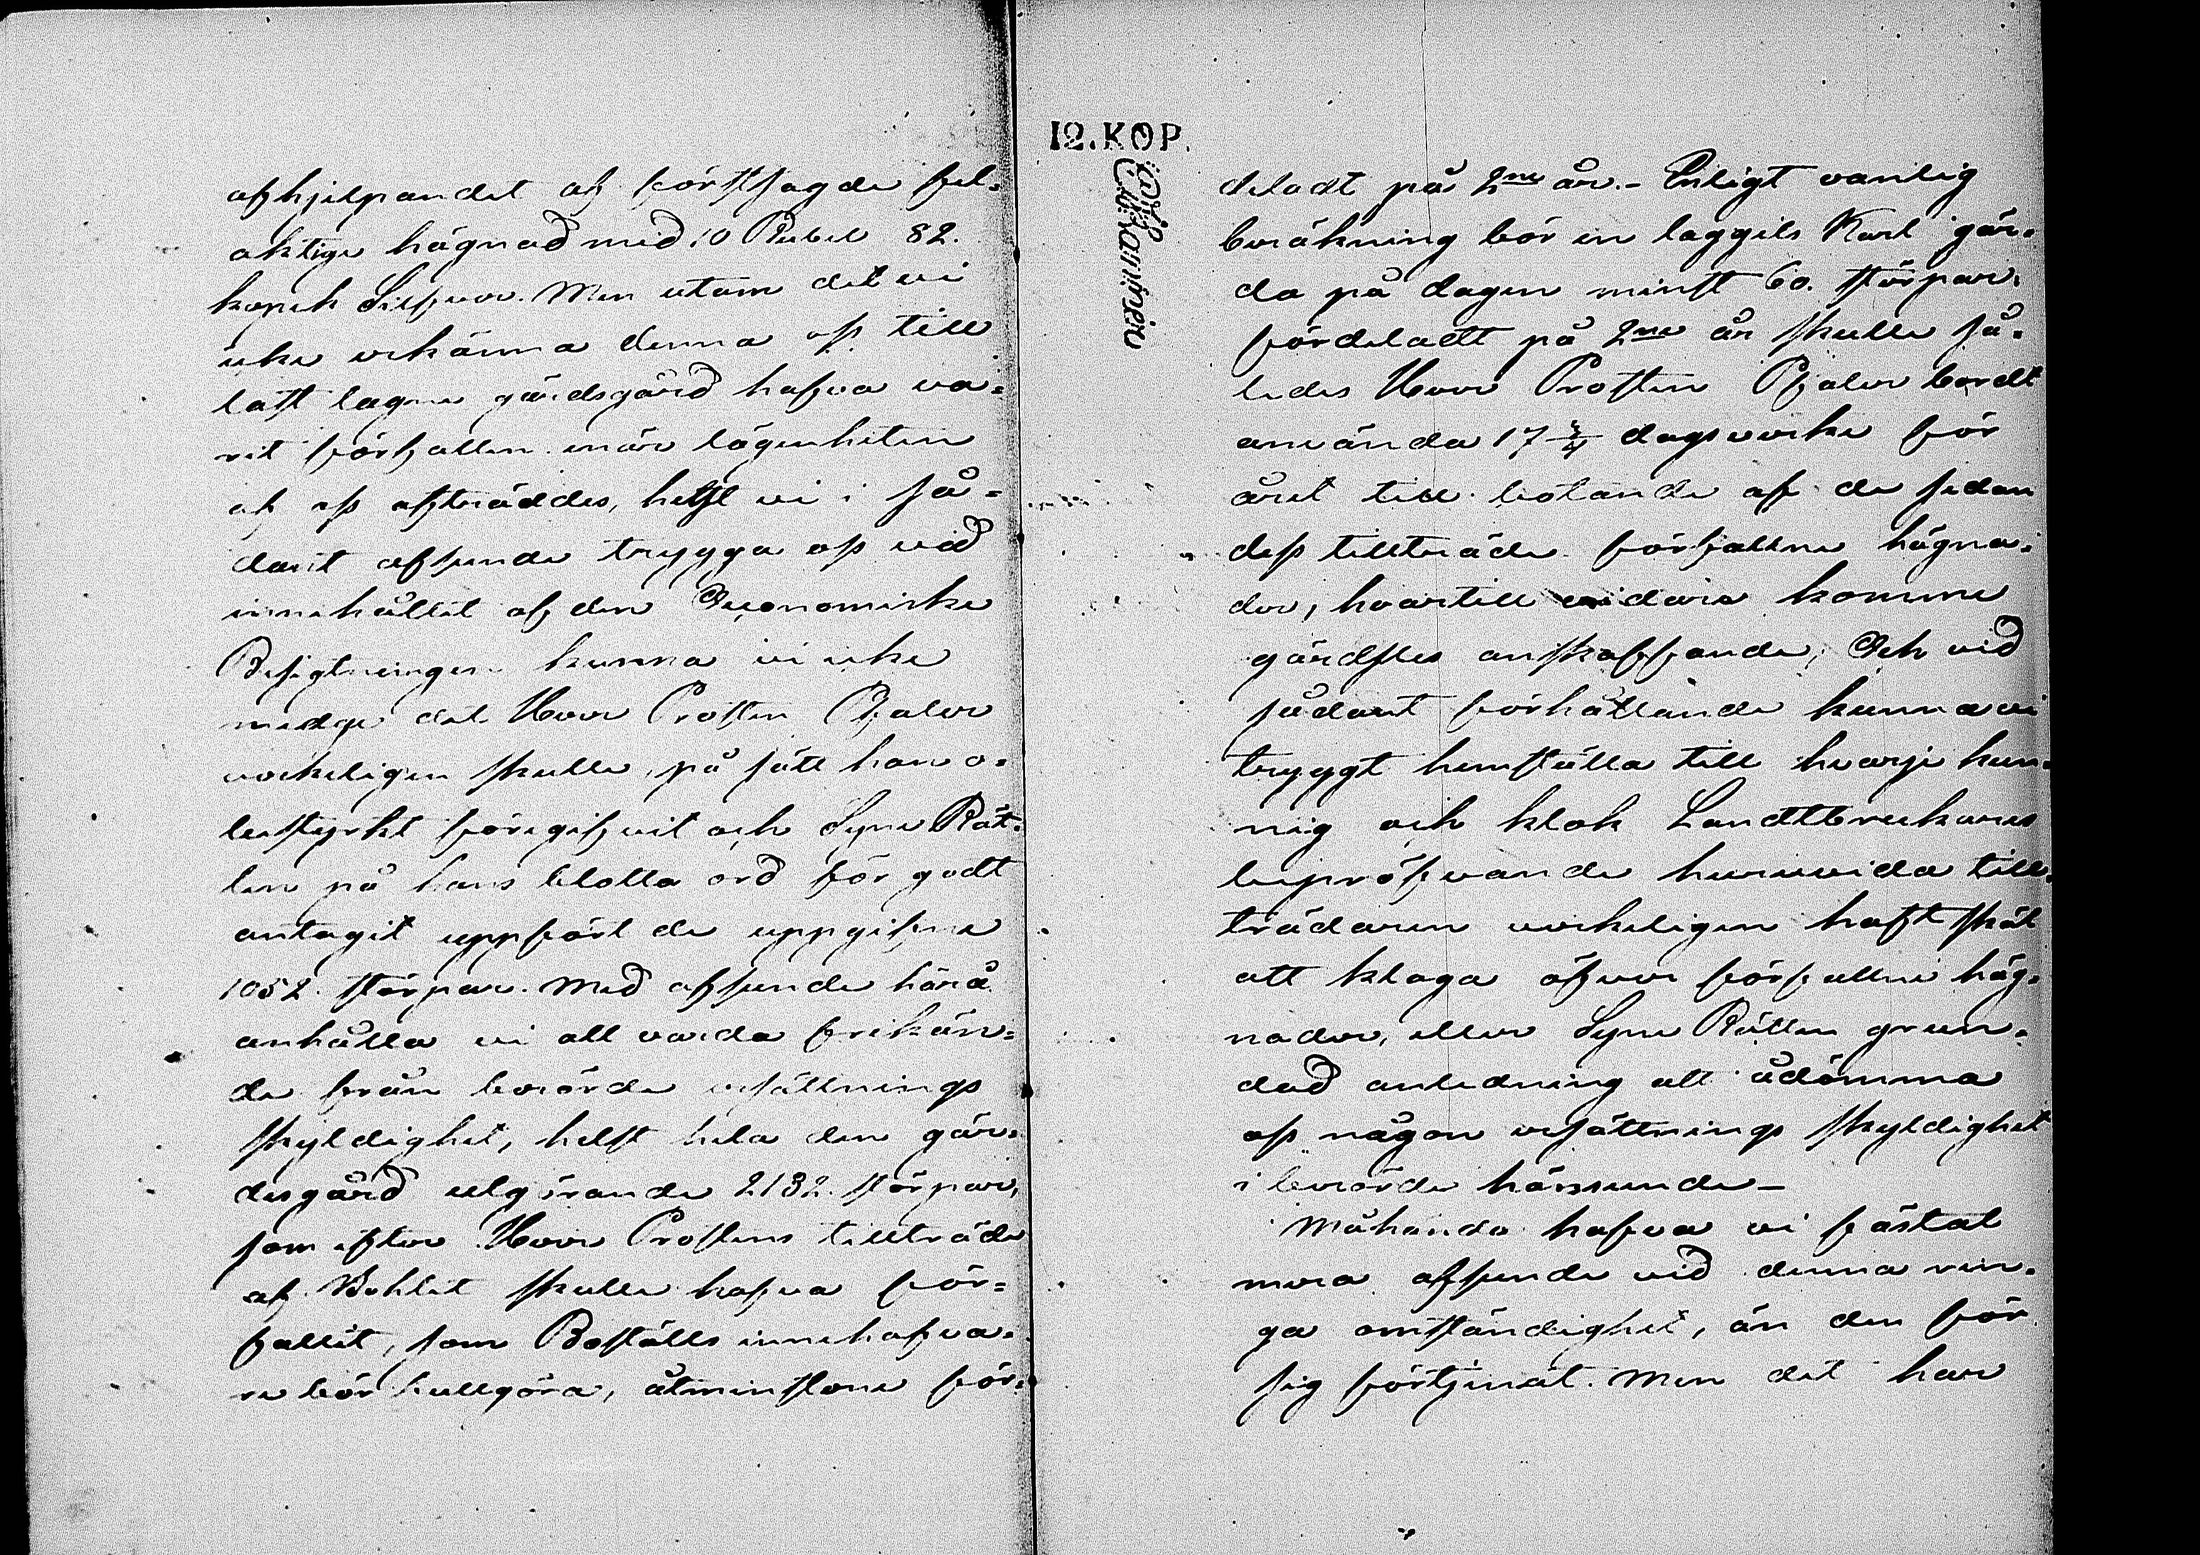 afhjelpandet af förstsagde fel-
aktige hägnad med 10 Rubel 82.
kopek Silfver. Men utom det vi
icke erkänna denna oss till
last lagne gärdsgård hafva va-
rit förfallen när lägenheten
af oss afträddes, helst vi i så-
dant afseende trygga oss vid
innehållet af den Oeconomiske
Besigtningen kunna vi icke
medge det Herr Prosten Pfaler
verkeligen skulle, på sätt han o-
bestyrkt föregifvit och Syne Rät-
ten på hans blotta ord för godt
antagit uppfört de uppgifne
1052 störpar. Med afseende härå
anhålla vi att varda frikän-
de från berörde ersättnings
skyldighet, helst hela den gär-
desgård utgörande 2132 störpar,
som efter Herr Prostens tillträde
af Bohlet skulle hafva för-
fallit, som Boställs innehafva-
re bör fullgöra, åtminstone för-
12. KOP.
deladt på 2ne år.- Enligt vanlig
beräkning bör en laggild Karl gär-
da på dagen minst 60. störpar,
fördeladt på 2ne år skulle så-
ledes Herr Prosten Pfaler bordt
använda 17 3/4 dagsverke för
året till botande af de sedan
dess tillträde förfallne hägna-
der, hvartill vidare komme
gärdsles anskaffande; Och vid
sådant förhållande kunna vi
tryggt hemställa till hvarje kun-
nig och klok Landtbrukares
bepröfvande huruvida till-
trädaren verkeligen haft skäl
att klaga öfver förfallne häg-
nader, eller Syne Rätten grun-
dad anledning att ådömma
oss någon ersättnings skyldighet
i berörde hänseende_
Måhända hafva vi fästat
mera afseende vid denna rin-
ga omständighet, än den för
sig förtjenat. Men det har